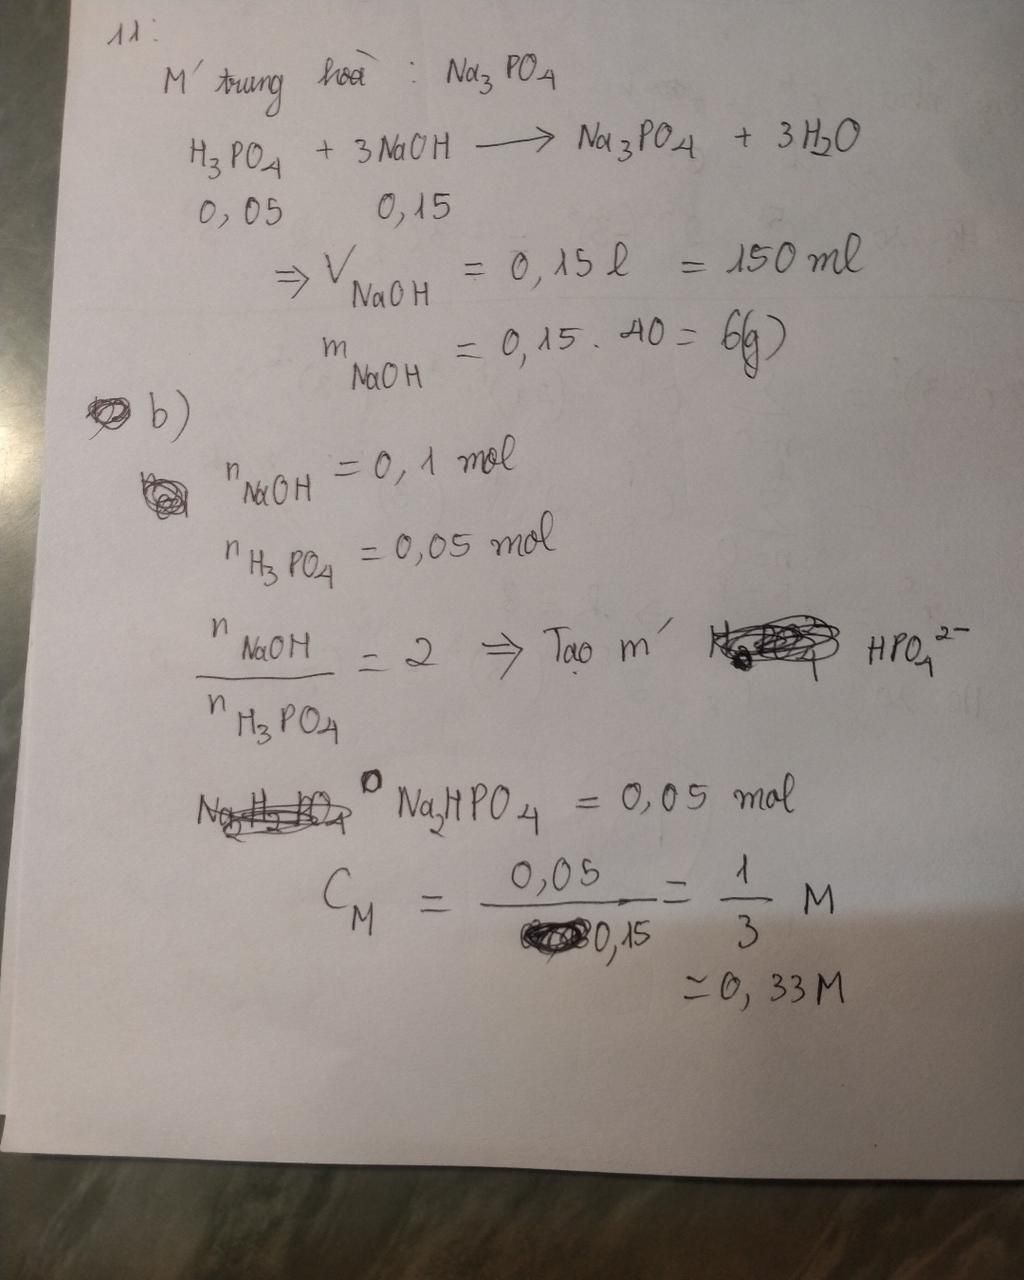 11:
M' trung hoà : Na₃PO₄
H₃PO₄ + 3NaOH ⟶ Na₃PO₄ + 3H₂O
0,05 0,15
⇒ V_NaOH = 0,15 l = 150 ml
m_NaOH = 0,15 . 40 = 6(g)
b)
n_NaOH = 0,1 mol
n_H₃PO₄ = 0,05 mol
n_NaOH / n_H₃PO₄ = 2 ⇒ Tạo m' HPO₄²⁻
Na₂HPO₄ = 0,05 mol
C_M = 0,05 / 0,15 = 1/3 M
= 0,33M